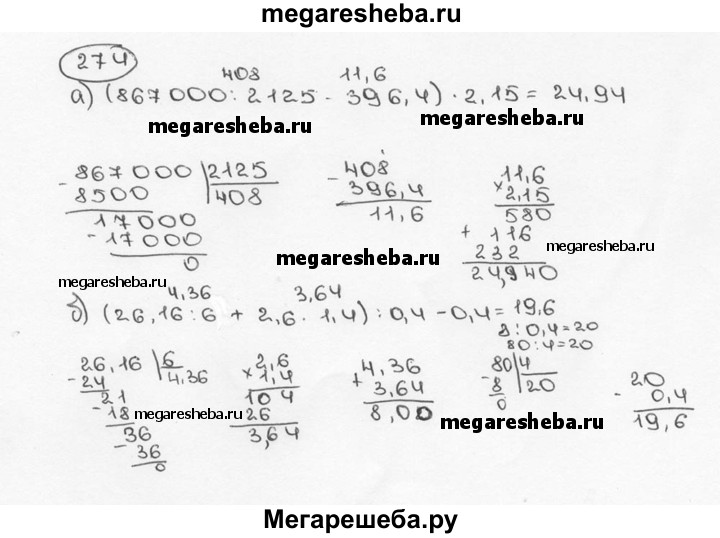 megaresheba.ru
274
408 11,6
а) (867000 : 2125 - 396,4) · 2,15 = 24,94
megaresheba.ru megaresheba.ru
- 867000 | 2125
8500 408
17000
- 17000
0
- 408
396,4
11,6
11,6
× 2,15
580
+ 116
232
24,940
megaresheba.ru
megaresheba.ru
megaresheba.ru
4,36 3,64
б) (26,16 : 6 + 2,6 · 1,4) : 0,4 - 0,4 = 19,6
8 : 0,4 = 20
80 : 4 = 20
26,16 | 6
- 24 4,36
21
- 18
36
- 36
0
2,6
× 1,4
104
26
3,64
4,36
+ 3,64
8,00
80 | 4
- 8 20
0
- 20
0,4
19,6
megaresheba.ru
megaresheba.ru
Мегарешеба.ру